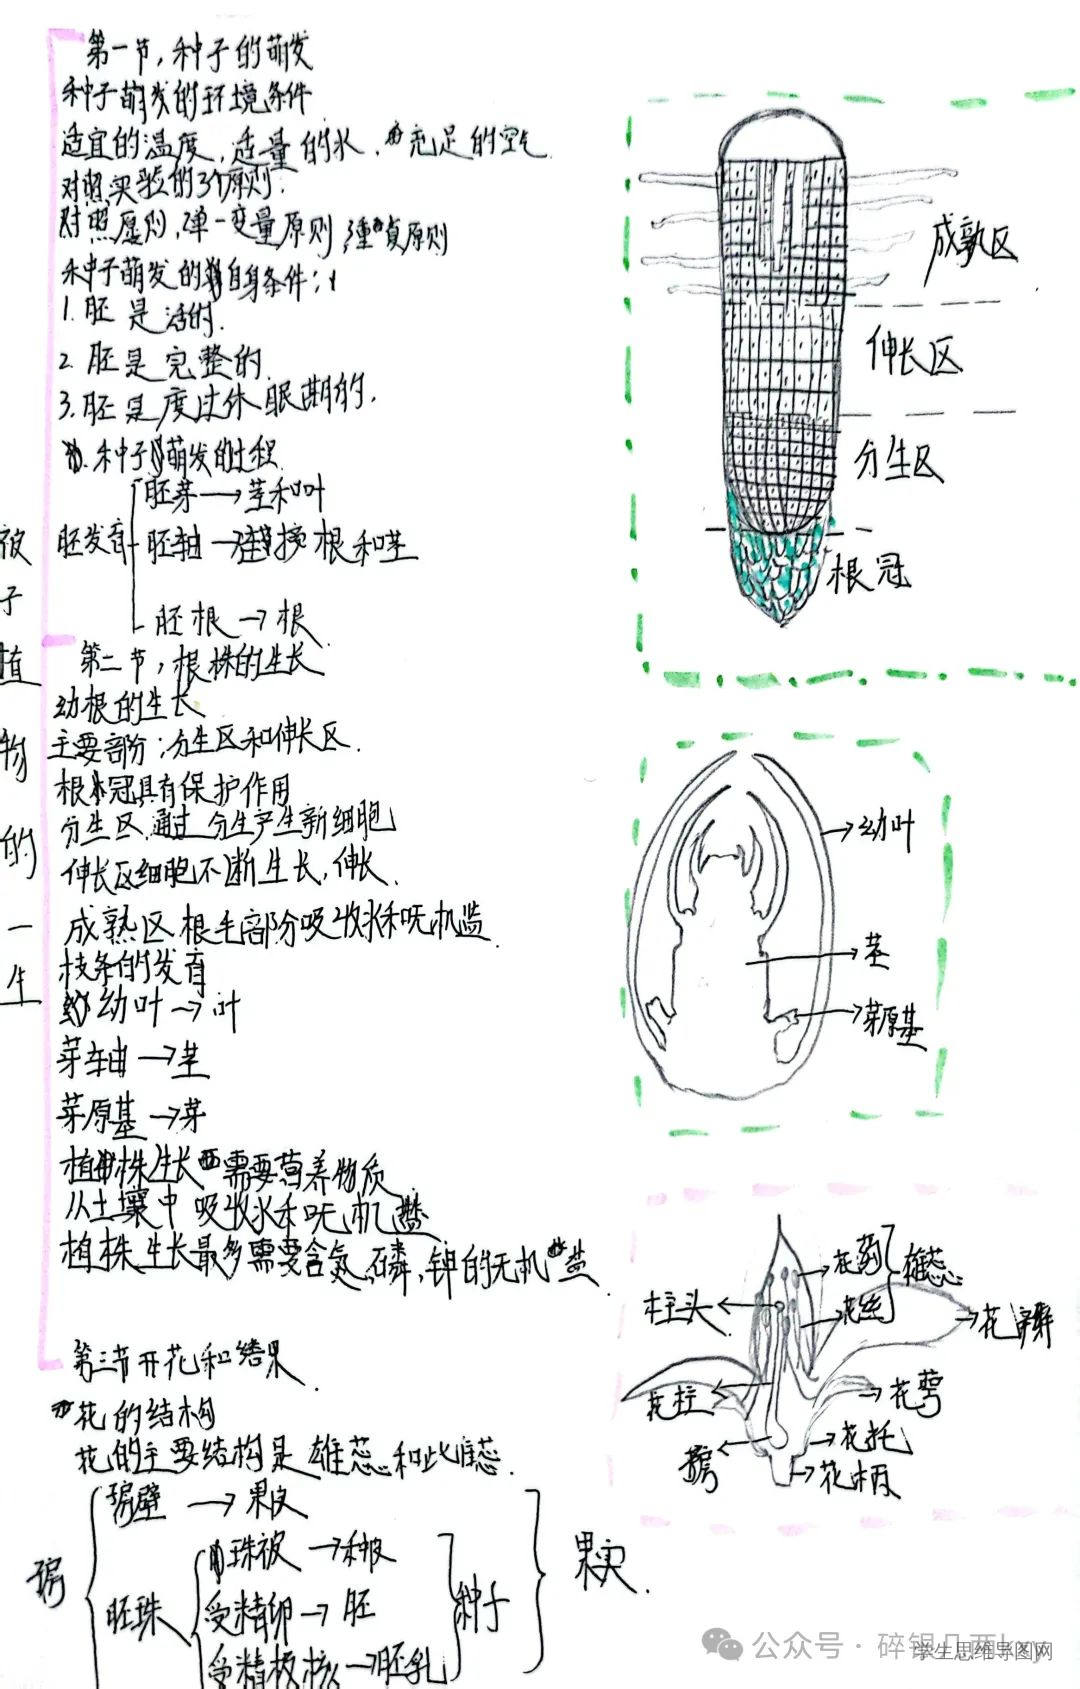 被子植物的一生
第一节,种子的萌发
种子萌发的环境条件
适宜的温度,适量的水,充足的空气
对照实验的3个原则:
对照原则,单一变量原则,重复原则
种子萌发的自身条件:
1.胚是活的.
2.胚是完整的.
3.胚是度过休眠期的.
种子萌发的过程
胚发育
胚芽→茎和叶
胚轴→连接根和茎
胚根→根
第二节,植株的生长
幼根的生长
主要部分:分生区和伸长区.
根冠具有保护作用
分生区通过分生产生新细胞
伸长区细胞不断生长,伸长.
成熟区根毛部分吸收水和无机盐
枝条的发育
幼叶→叶
芽轴→茎
芽原基→芽
植株生长需要营养物质
从土壤中吸收水和无机盐
植株生长最多需要含氮,磷,钾的无机盐
第三节开花和结果
花的结构
花的主要结构是雄蕊和雌蕊.
子房
子房壁→果皮
胚珠
珠被→种皮
受精卵→胚
受精极核→胚乳
种子
果实.
成熟区
伸长区
分生区
根冠
幼叶
茎
芽原基
花药
花丝
雄蕊
柱头
花瓣
花柱
花萼
子房
花托
花柄
公众号·碎银几两
学生思维导图网